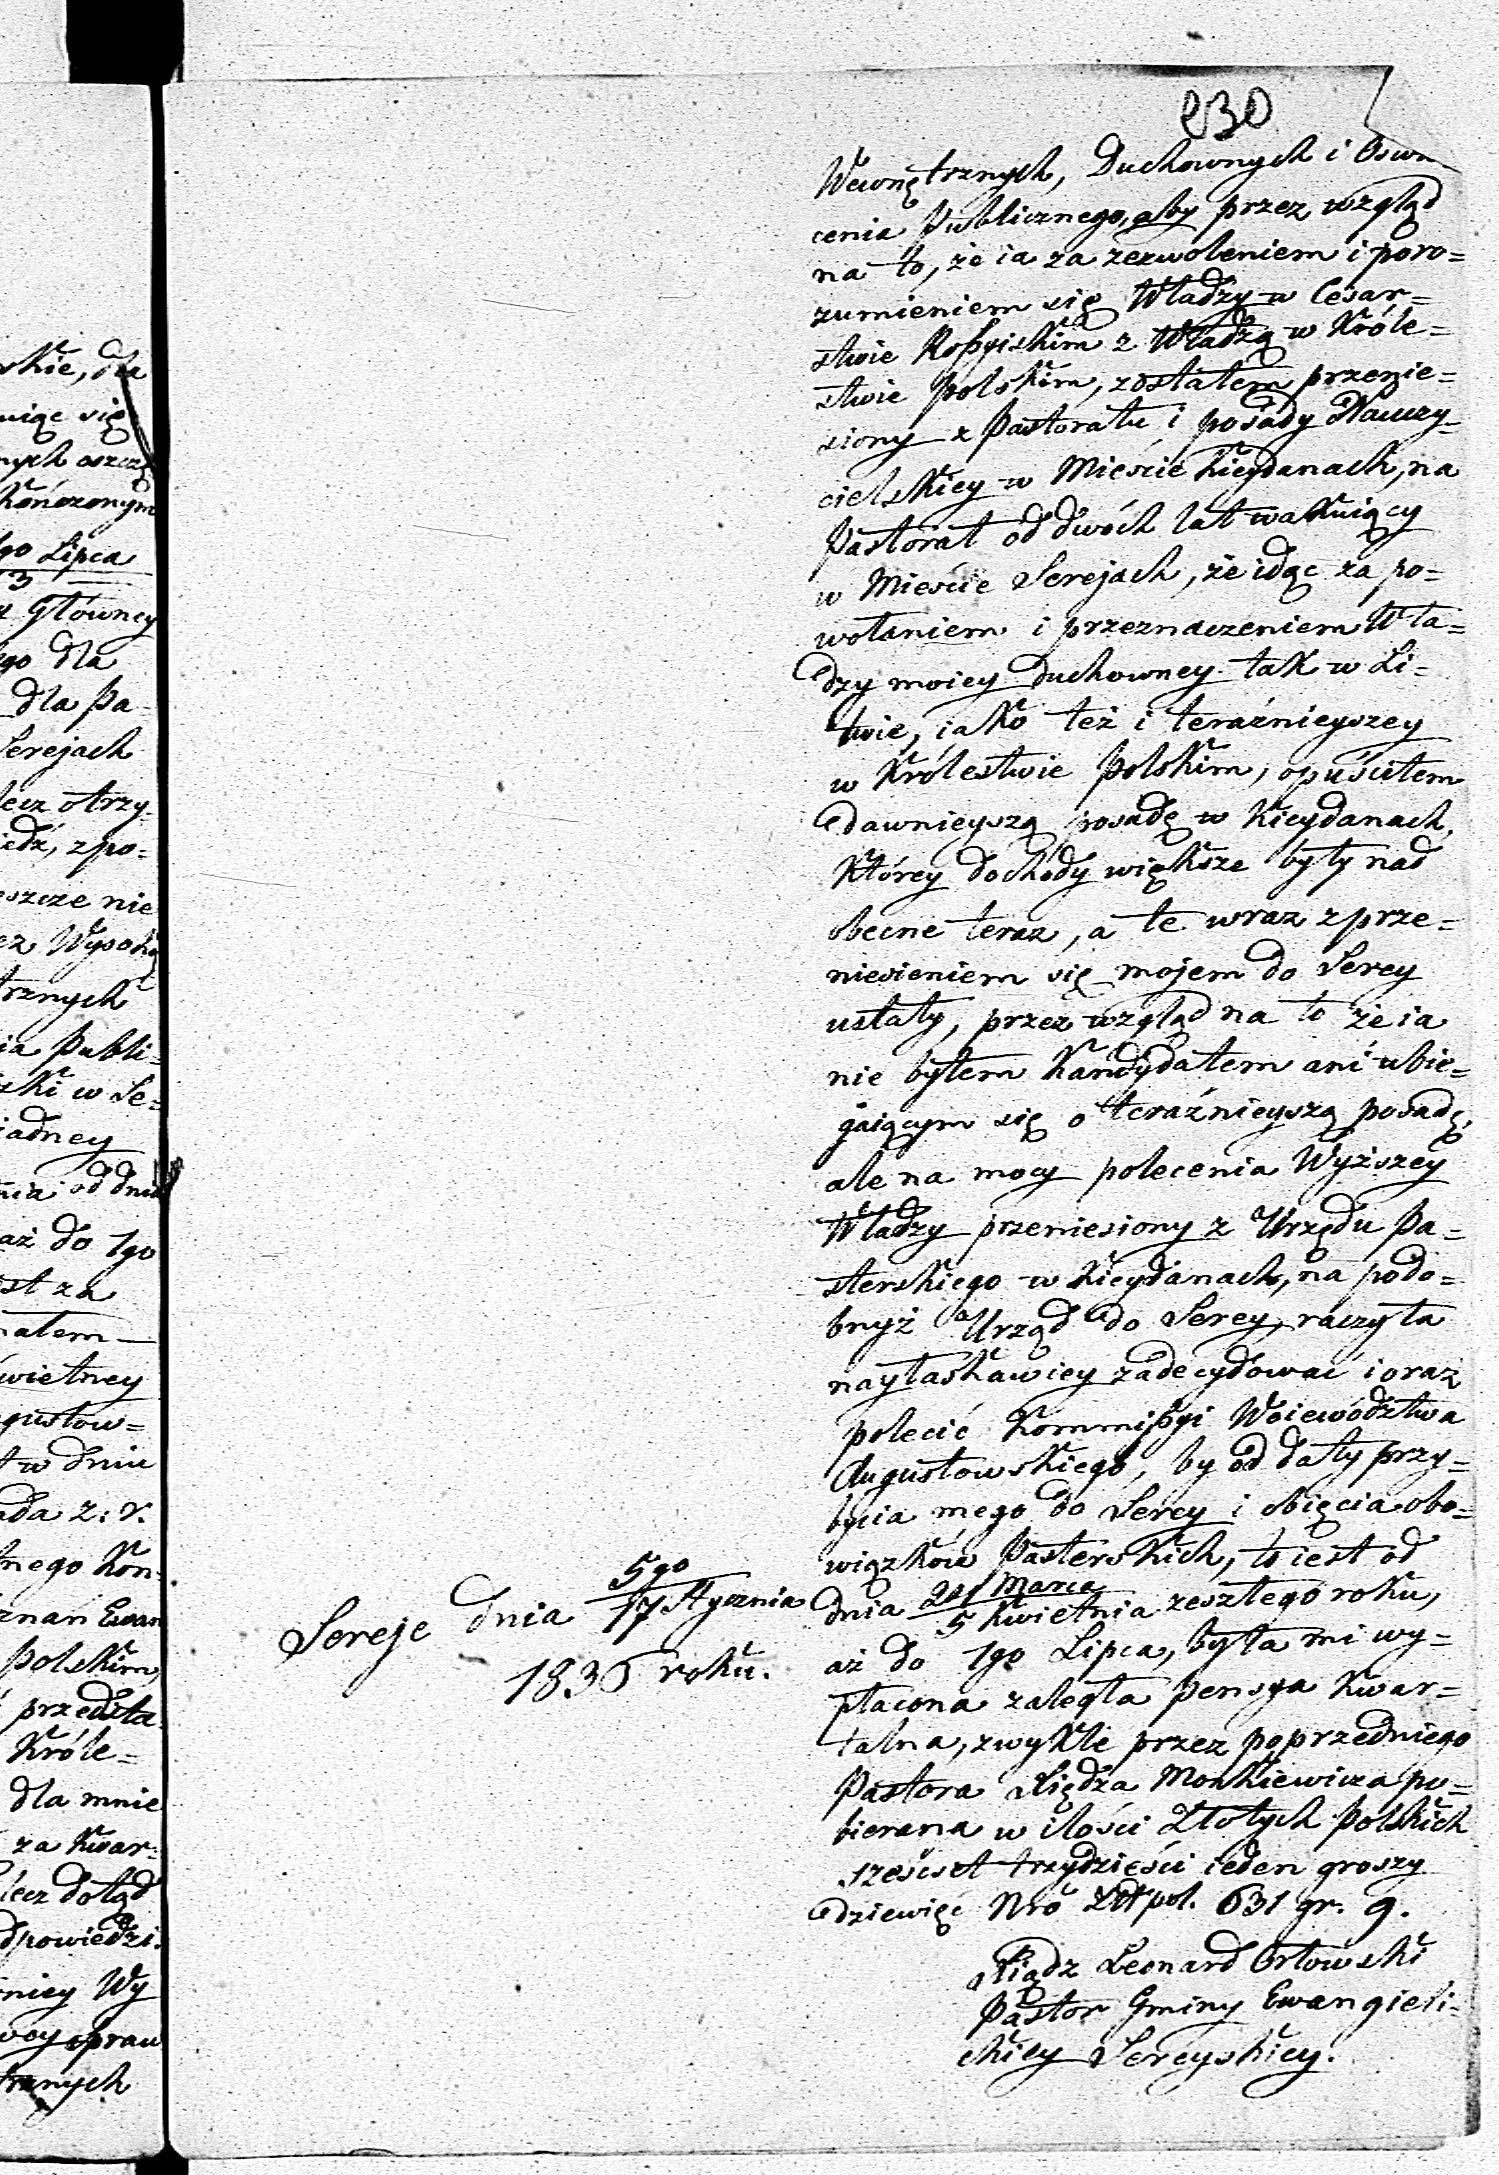 230
Wewnętrznych, Duchownych i Oświe
cenia Publicznego, aby przez wzgląd
na to, że ia za zezwoleniem i poro=
zumieniem się Władzy w Cesar=
stwie Rossyiskim z Władzą w Króle=
stwie Polskim, zostałem przenie=
siony z Pastoratu i posady Nauczy=
cielskiey w Mieście Kieydanach, na
Pastorat od dwóch lat wakuiący
w Mieście Serejach, że idąc za po=
wołaniem i przeznaczeniem Wła=
dzy moiey Duchowney tak w Li=
twie, iako też i teraźnieyszey
w Królestwie Polskim, opuściłem
dawnieyszą posadę w Kieydanach,
Którey dochody większe były nad
obecne teraz, a te wraz z prze=
niesieniem się mojem do Serey
ustały, przez wzgląd na to że ia
nie byłem Kandydatem ani ubie=
gaiącym się o teraźnieyszą posadę,
ale na mocy polecenia Wyższey
Władzy przeniesiony z Urzędu Pa=
sterskiego w Kieydanach, na podo=
bnyż Urząd do Serey, raczyła
nayłaskawiey zadecydować i oraz
polecić Kommissyi Woiewództwa
Augustowskiego, by od daty przy=
bycia mego do Serey i obięcia obo=
wiązków Pasterskich, to iest od
dnia 24 Marca / 5 Kwietnia zeszłego roku,
aż do 1go Lipca, była mi wy=
płacona zaległa pensya Kwar=
talna, zwykle przez poprzedniego
Pastora Xiędza Monkiewicza po=
bierana w ilości Złotych Polskich
sześćset trzydzieści ieden groszy
dziewięć Nro Złł pol. 631 gr. 9.
Xiądz Leonard Orłowski
Pastor Gminy Ewangieli=
ckiey Sereyskiey.
Sereje dnia 5go / 17 Stycznia
1836 roku.
skie, dla
uiąc się
nych oszczę
Kończonym
1go Lipca
3
z Główney
go dla
dla Pa
Serejach
lecz otrzy
iedź, z po=
eszcze nie
ez Wysoką
trznych
ia Publi=
zki w Se=
iadney
nia od dnia
aż do 1go
st za
małem
wietney
gustow=
t w dniu
ada z. r.
lnego Kon
znań Ewan
Polskim,
przedsta
Króle=
dla mnie
za Kwar=
lecz dotąd
dpowiedzi.
niey Wy
woy spraw
trznych